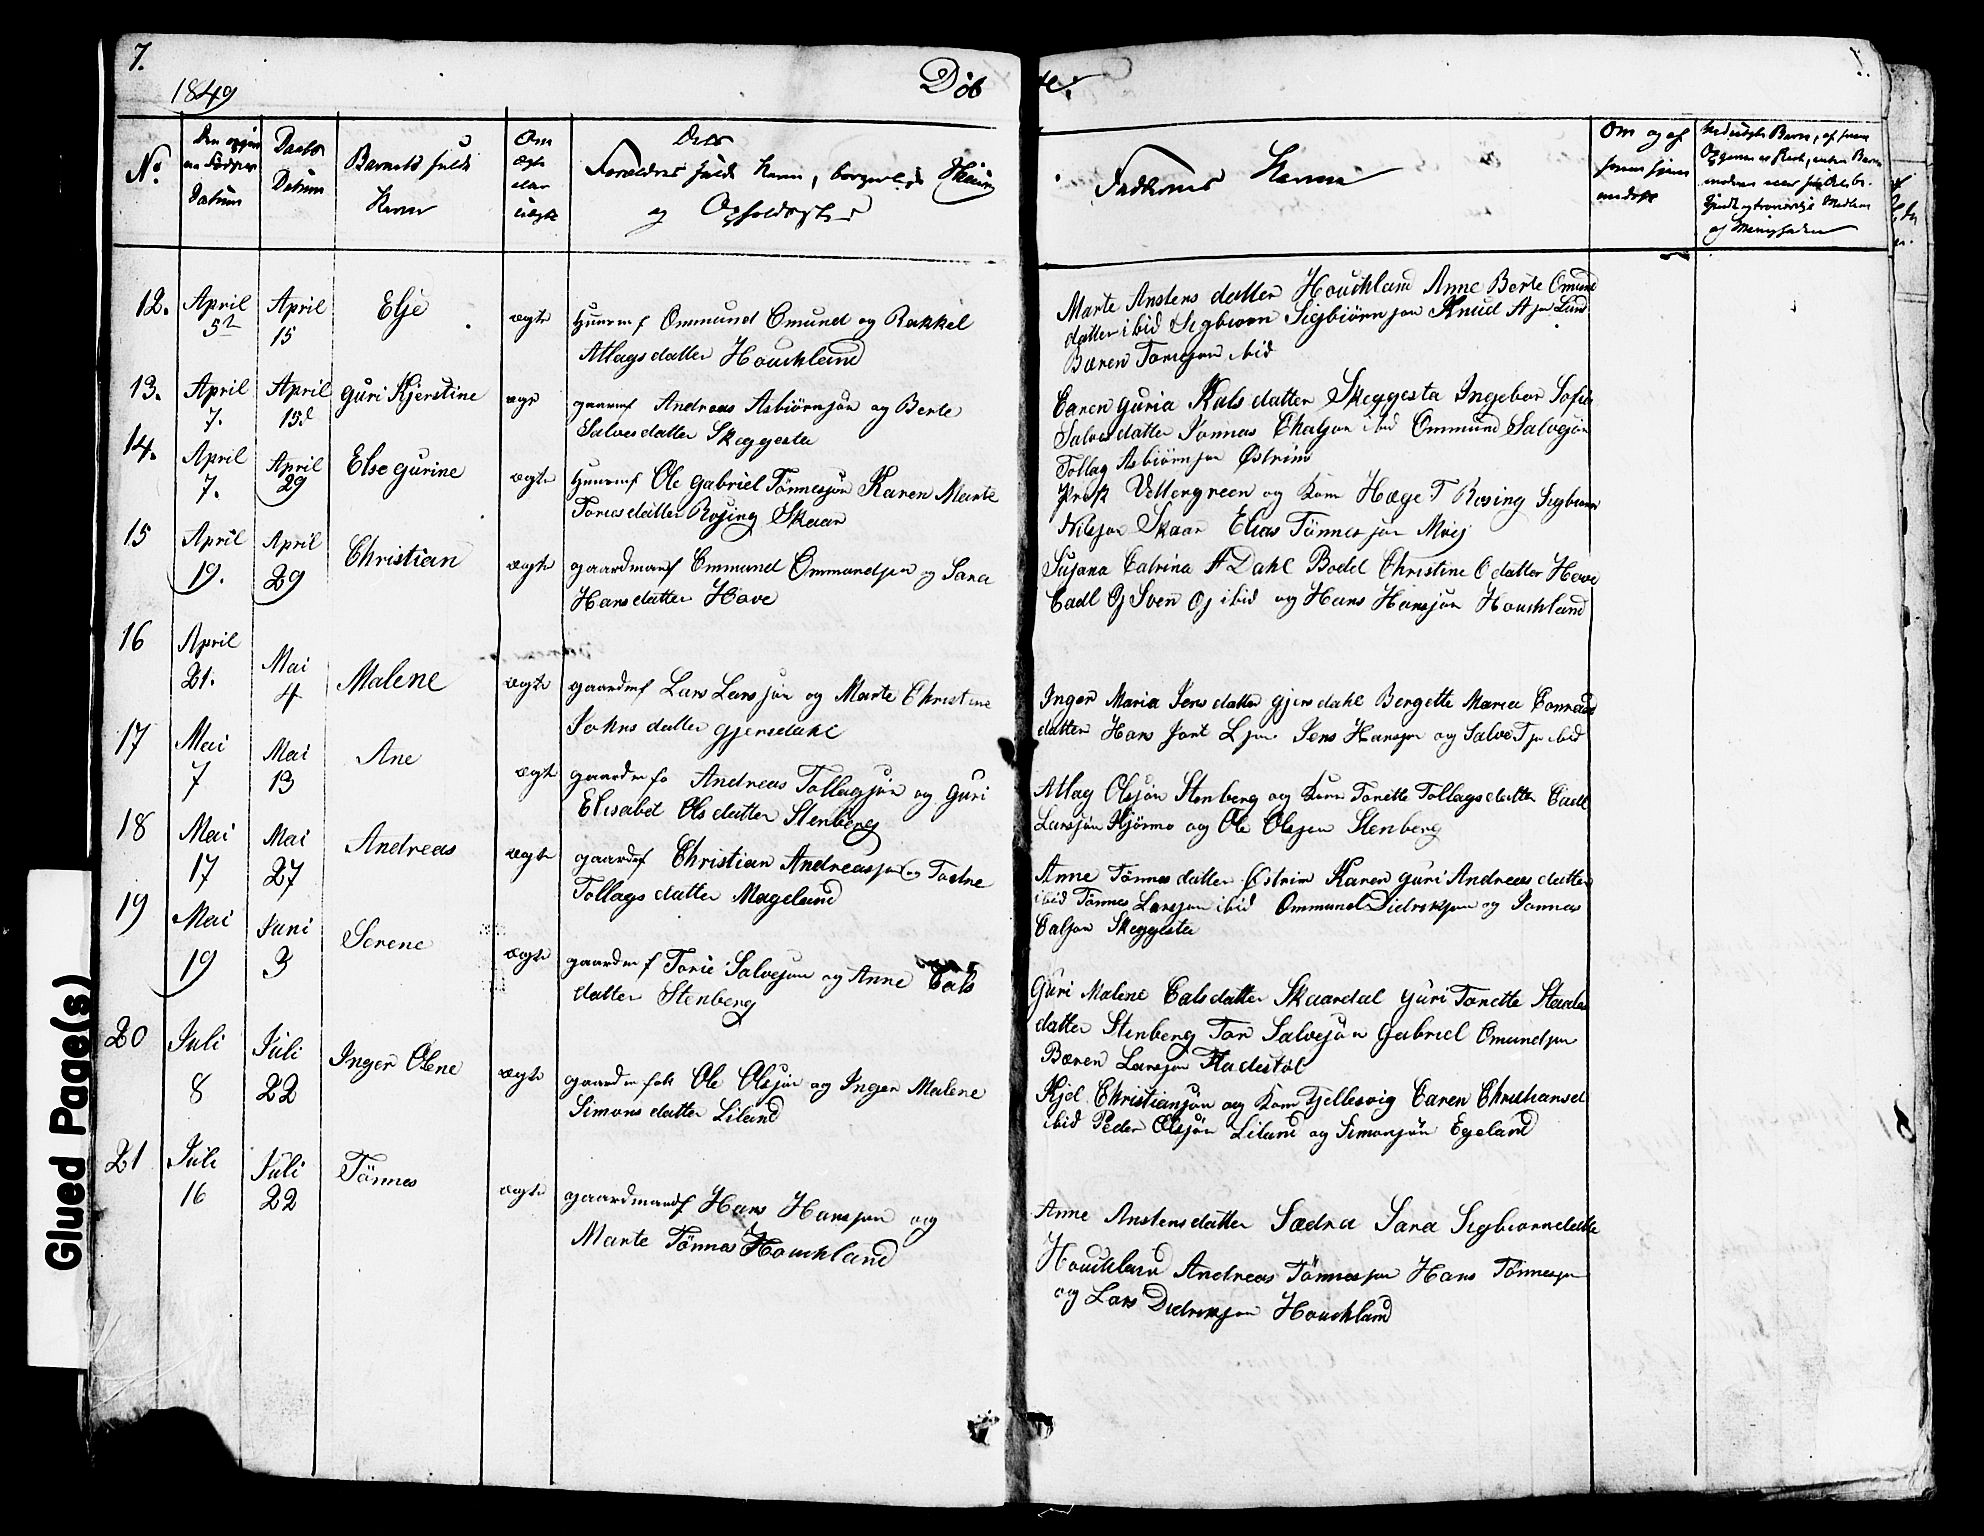 7.
1849
Döb
te.
No.
Datum
Daabs
Datum
Barnets fulde
Navn
Om
ægte
eller
uægte
Forældres fulde Navn, borgerlige
og Opholdssted
Faddernes Navne
Om og af
12.
April
5te
April
15
Elje
ægte
Huusmf Ommund Omund og Rakkel
Atlagsdatter Houchland
Marte Anstens datter Houchland Anne Berte Omund
datter ibid Sigbiorn Sigbiörnjon Knud Ajon Lund
Bæren Tomesjon ibid
13.
April
7.
April
15d
Guri Kjerstine
ægte
gaardmf Andreas Asbiörnjön og Berte
Salvesdatter Skeggesta
Caren Guria Kals datter Skeggesta Ingebor Sofie
Salves datter Jonnas Chaljon ibid Ommund Salvejön
Tollag Asbiörnjon Östrim
14.
April
7.
April
29
Else Gurine
ægte
Huusmf Ole Gabriel Tönnesjön Karen Marte
Toriasdatter Rosing Skaar
Vettergreen og Kone Hæge T Rosing Sigbiorn
Niljon Skaar Elias Tönnesjon Moij
15
April
19.
April
29
Christian
ægte
gaardmanf Ommund Ommundjon og Sara
Hansdatter Hove
Sujana Catrina A Dahl Bodel Christine O datter Hove
Cadl Oj Sven Oj ibid og Hans Hansjön Houchland
16
April
21.
Mai
4
Malene
ægte
gaardmf Lars Larsjön og Marte Christine
Johns datter Gjersdahl
Inger Maria Jens datter Gjersdahl Bergette Maria Conrads
datter Hans Jort Ljon Jens Hansjon og Salve Tjon ibid
17
Mai
7
Mai
13
Ane
ægte
gaardmfo Andreas Tollagjön og Guri
Elisabet Ols datter Stenberg
Atlag Olsjön Stenberg og Kone Tonette Tollagsdatter Cadl
Larsjön Hjörmo og Ole Olsjon Stenberg
18
Mai
17
Mai
27
Andreas
ægte
gaardmf Christian Andreasjon og Torine
Tollags datter Mageland
Anne Tönnesdatter Östrim Karen Guri Andreas datter
ibid Tönnes Larsjon ibid Ommund Didriksjon og Jonnas
Caljon Skeggesta
19
Mai
19
Juni
3
Serene
ægte
gaardmf Torie Salvejon og Anne Cals
datter Stenberg
Guri Malene Calsdatter Skaardal Guri Tonette
datter Stenberg Tor Salvejön Gabriel Omundjon
Bæren Larsjon Fladestöl
20
Juli
8
Juli
22
Inger Olene
ægte
Ole Olsjön og Inger Malene
Simons datter Liland
Kjel Christianjön og Kone Tjellesvig Caren Christiansd
ibid Peder Olsjön Liland og Simonjön Egeland
21
Juli
16
Juli
22
Tönnes
ægte
gaardmanf Hans Hansjon og
Marte Tönnesd Houchland
Anne Anstensdatter Sædra Sara Sigbiornedatte
Houchland Andreas Tönnesjon Hans Tönnesjon
og Lars Didriksjon Houchland
Glued Page(s)